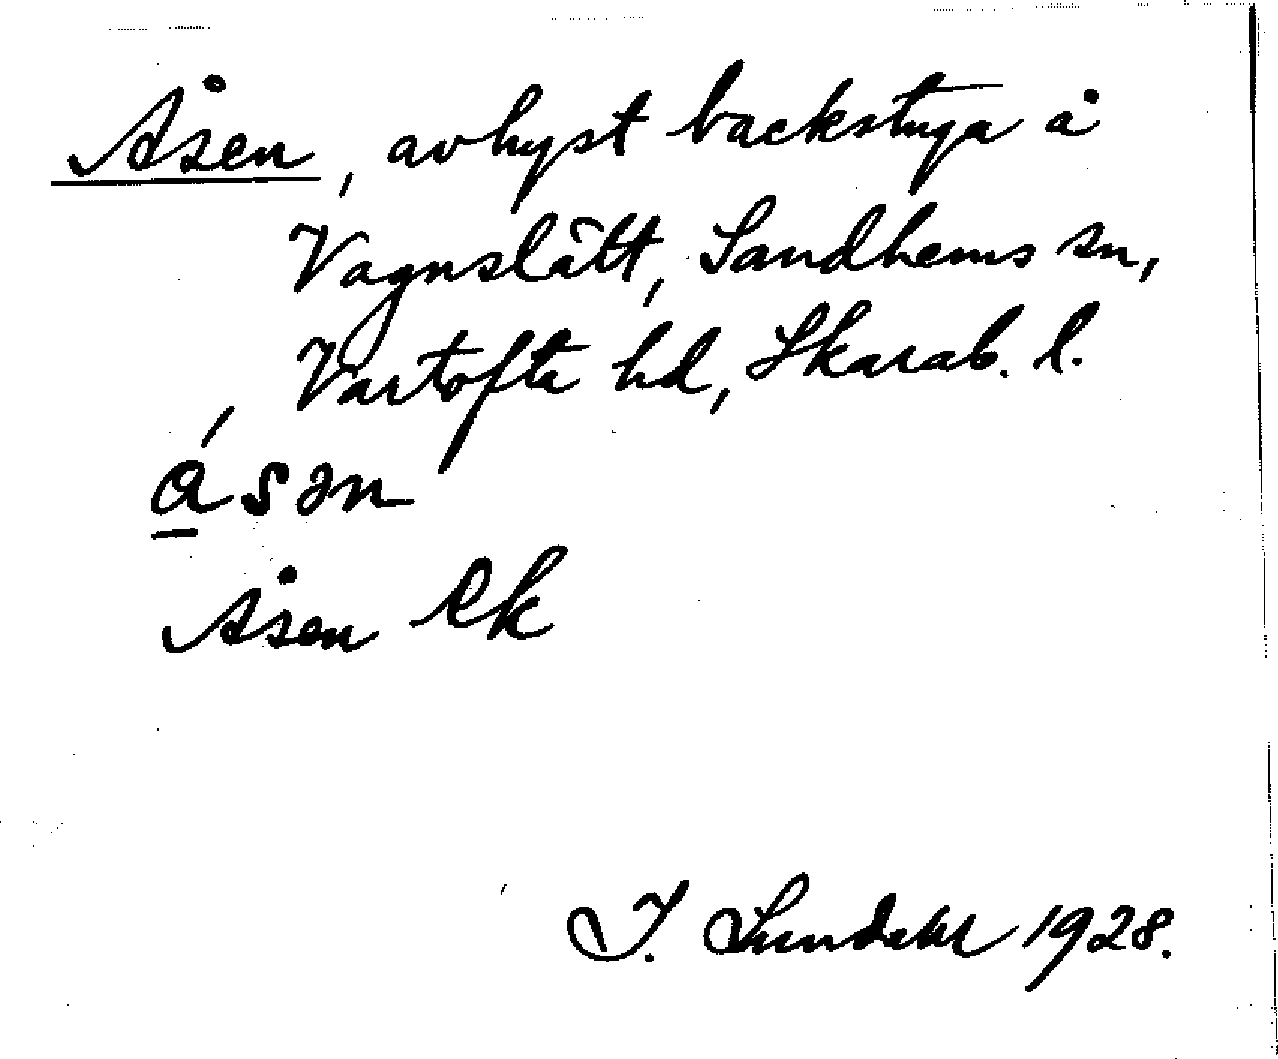 Åsen, avhyst backstuga å
Vagnslätt, Sandhems sn,
Vartofta hd, Skarab. l.
á̲sən
Åsen Ek
I. Lundahl 1928.